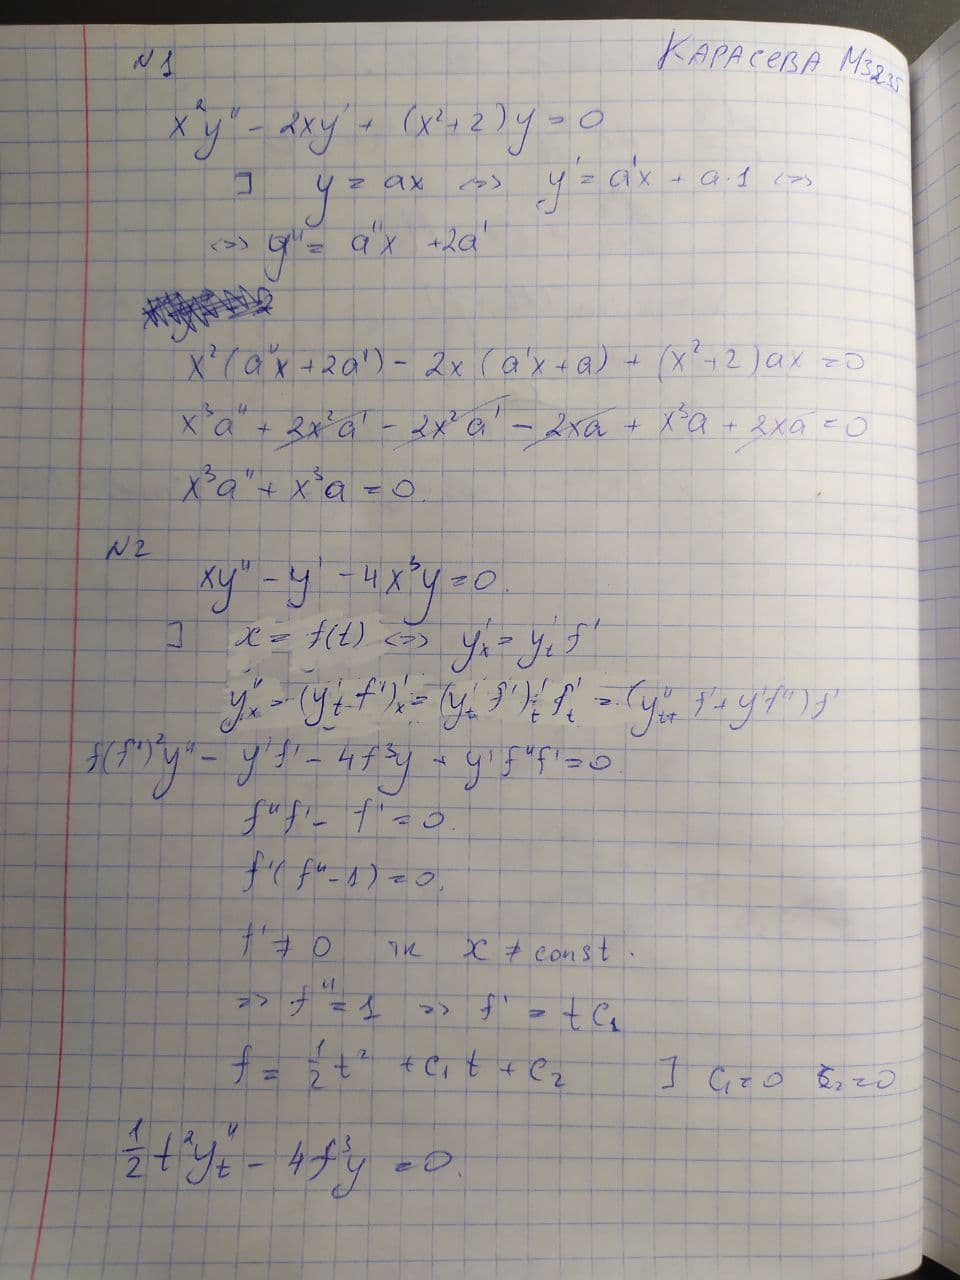 N1 КАРАСЕВА M3235
x²y'' - 2xy' + (x²+2)y = 0
] y = ax <=> y' = a'x + a·1 <=>
<=> y'' = a''x + 2a'
x²(a''x + 2a') - 2x(a'x + a) + (x²+2)ax = 0
x³a'' + 2x²a' - 2x²a' - 2xa + x³a + 2xa = 0
x³a'' + x³a = 0.
N2
xy'' - y' - 4x³y = 0.
] x = f(t) <=> y'ₓ = y'ₜ f'
y''ₓ = (y'ₜ f')'ₓ = (y'ₜ f')'ₜ f'ₜ = (y''ₜₜ f' + y'f'')f'
f(f')²y'' - y'f' - 4f³y + y'f''f' = 0.
f''f' - f' = 0.
f'(f''-1) = 0.
f' ≠ 0 тк x ≠ const.
=> f'' = 1 => f' = t C₁
f = ½t² + C₁t + C₂ ] C₁=0 C₂=0
½t²y''ₜ - 4f³y = 0.